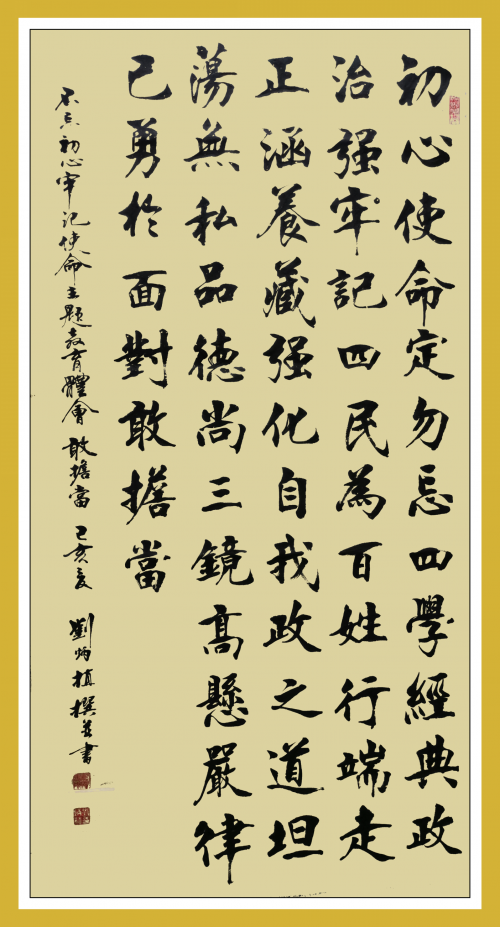 初心使命定勿忘四學經典政
治强牢記四民為百姓行端走
正涵養藏强化自我政之道坦
蕩無私品德尚三鏡高懸嚴律
己勇於面對敢擔當
不忘初心牢记使命主题教育體會 敢擔當 己亥夏 劉炳植撰并書